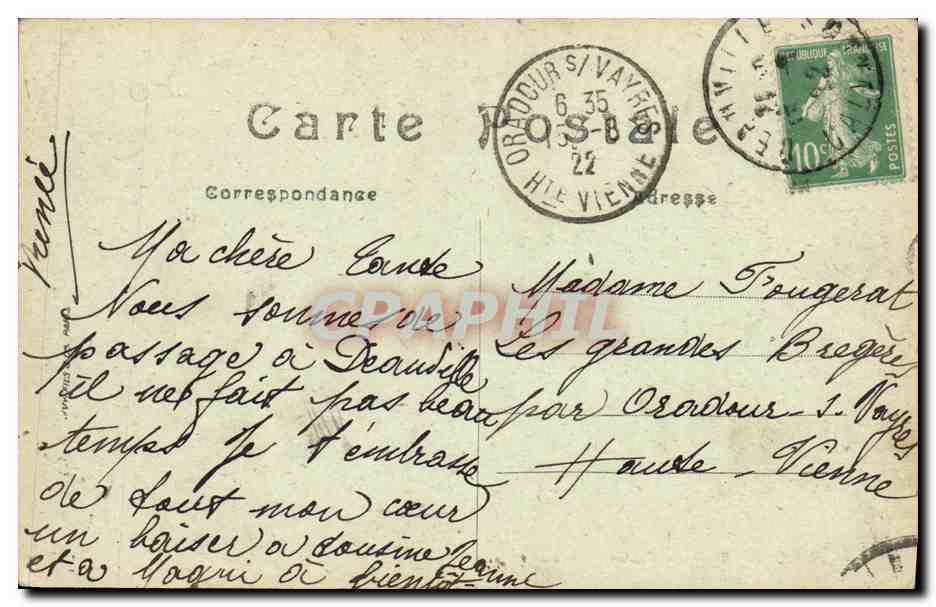 Carte Postale
Correspondance
Adresse
ORADOUR S/ VAYRES
6 35
22
HTE VIENNE
REPUBLIQUE FRANÇAISE
10c
POSTES
Renée
Ma chère Tante
Nous sommes de
passage à Deauville
il ne fait pas beau
temps Je t'embrasse
de tout mon cœur
un baiser a cousine Jeanne
et a à bientôt
Madame Fougerat
Les grandes Bregères
par Oradour-s-Vayres
Haute-Vienne
CRAPHIL